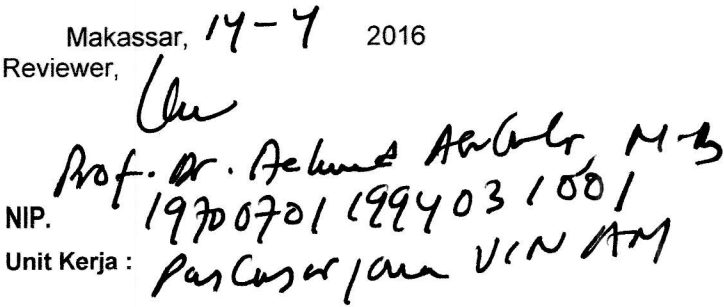 Makassar, 14 - 4 2016
Reviewer,
Prof. Dr. Achmad
NIP. 19700701 199403 1 001
Unit Kerja : Pascasarjana UIN AM